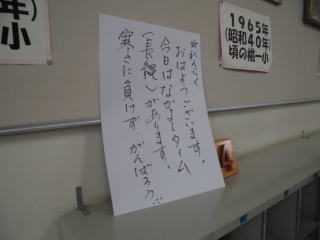 ☆れんらく
おはようございます。
今日はなかよしタイム
(長縄)があります。
寒さに負けず、がんばろう:
1965年
(昭和40年)
頃の桃一小
年)
小
4